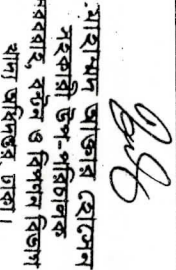 মোহাম্মদ আক্তার হোসেন
সহকারী উপ-পরিচালক
সরবরাহ, বন্টন ও বিপণন বিভাগ
খাদ্য অধিদপ্তর, ঢাকা।